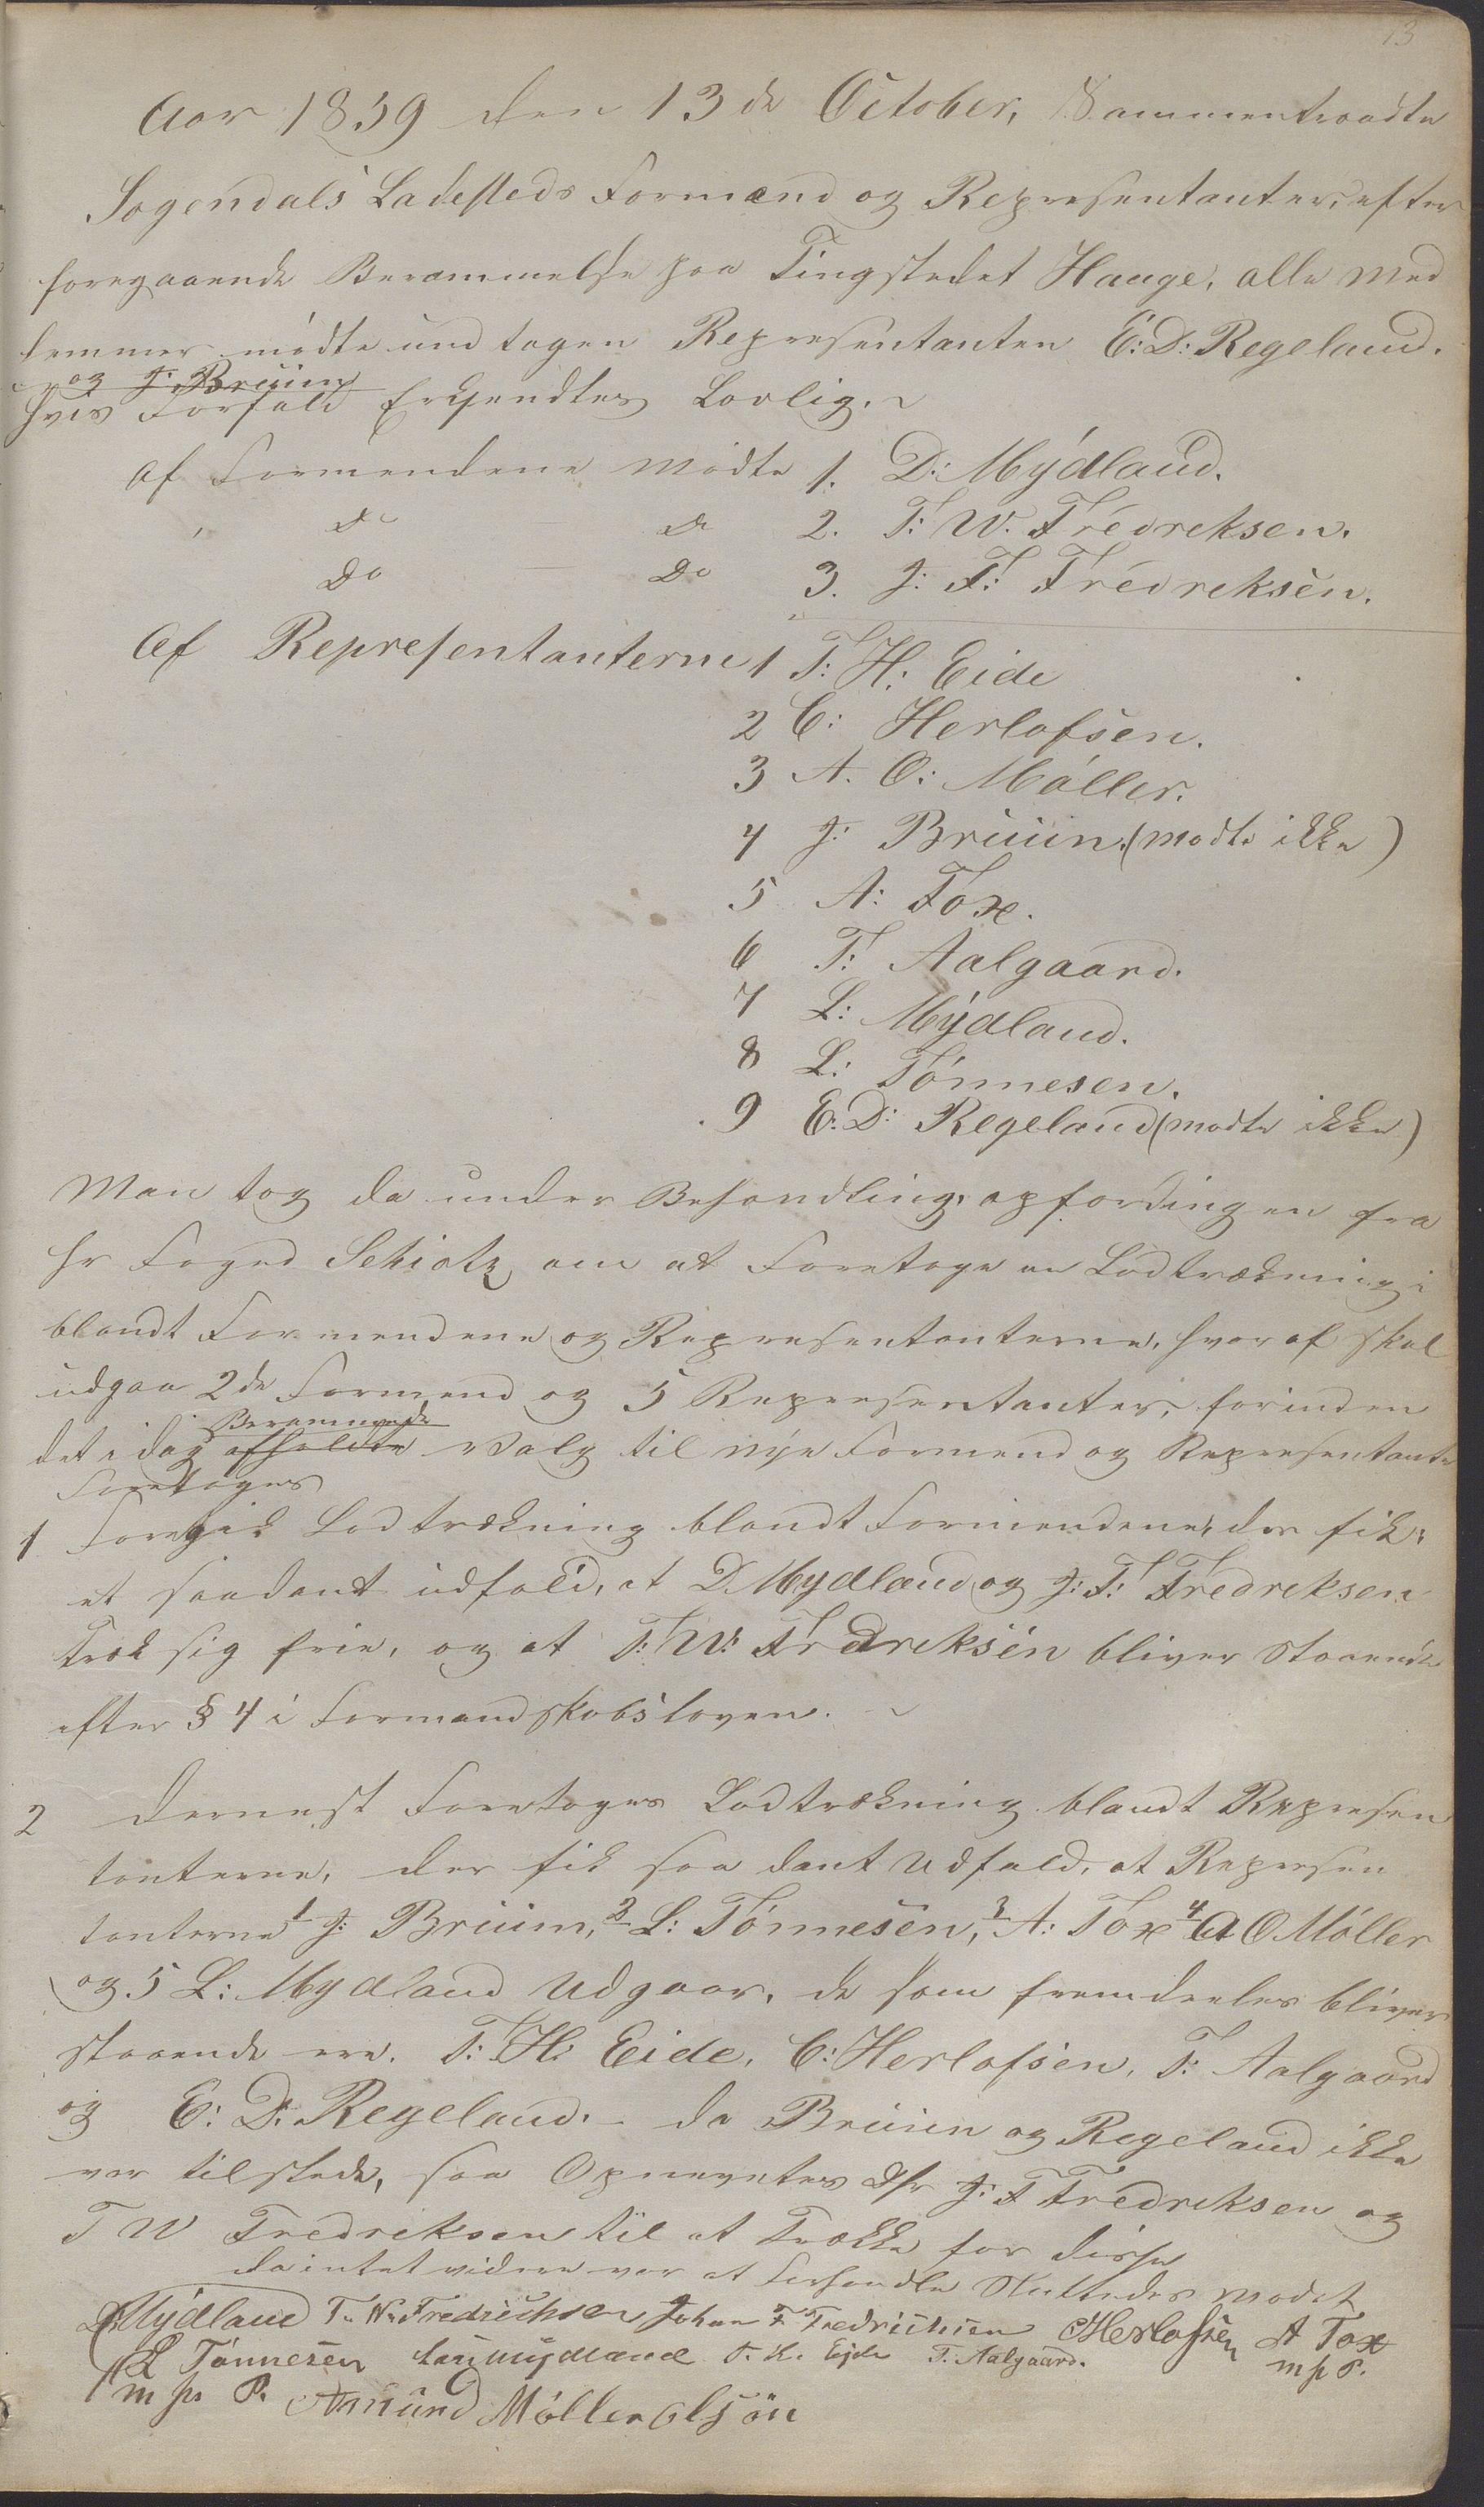 13
Aar 1839 den 13de October, Sammentraadte
Sogendals Ladesteds Formænd og Representanter, efter
foregaaende Berammelse paa Tingstedet Hauge, alle Med
lemmer mödte undtagen Representanten E: D: Regeland.
og J: Bruün
hvis Forfald Erkjendtes Lovlig.
Af Formendene Mödte 1. D: Mÿdland.
" do do 2. T: W. Fredreksen.
Do Do 3. J: F: Fredreksen.
Af Representanterne 1 T: H: Eide
2 C: Herlofsen.
3 A. O: Möller.
4 J: Bruün. (modte ikke)
5 A: Tox.
6 T: Aalgaard.
7 L: Mÿdland.
8 L: Tönnesen.
9 E. D: Regeland (modte ikke)
Man tog da under Behandling, opfordingen fra
Hr Foged Schiøtz om at Foretage en Lodtrækning i
blandt Formendene og Representanterne, hvoraf skal
udgaa 2de Formend og 5 Representanter, forinden
Berammede
det i dag afholdte Valg til nÿe Formend og Representante
Foretages
1 Foregik Lodtrækning blandt Formendene, der fik
et saadant udfald, at D. Mydland og J: F: Fredreksen
Trak sig frie, og at T: W: Fredreksen bliver Staaende
efter § 4 i Formandskabsloven.
2 dernest Foretages Lodtrækning blandt Represen
tanterne, der fik saadant Udfald, at Represen
tanterne 1 J: Bruün, 2 L: Tönnesen, 3 A: Tox 4 A O Möller
og 5 L: Mydland Udgaar, de som fremdeeles bliver
staaende ere. T: H: Eide, C: Herlofsen, T: Aalgaard
og E: D: Regeland. - da Bruün og Regeland ikke
var tilstede, saa Opnevntes J: F Fredreksen og
T W Fredreksen til at Trække for disse
da intet videre var at Forhandle Sluttedes Modet
D. Mÿdland T. W. Fredrichsen Johan F Fredrichsen CHerlofsen A Tox
L Tönnesen Lars Mÿdland T. H. Eide T. Aalgaard. m p P.
m p P. Amund Möller Olsön